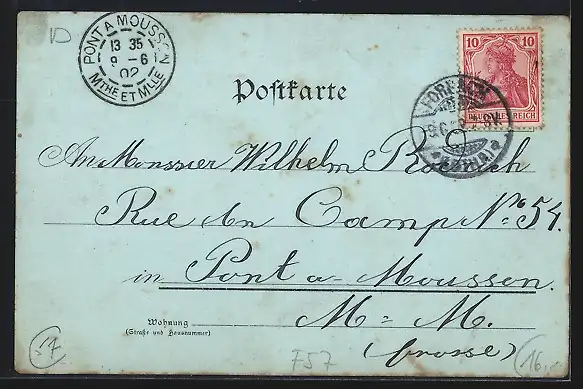 D
PONT A MOUSSON
13 35
9 - 6
02
MTHE ET MLLE
10 10
DEUTSCHES REICH
FORBACH
Postkarte
An Monssier Wilhelm
Rue du Camp No. 54.
in Pont a-Moussen.
M = M.
(brosse)
Wohnung
(Straße und Hausnummer)
F57
16,-